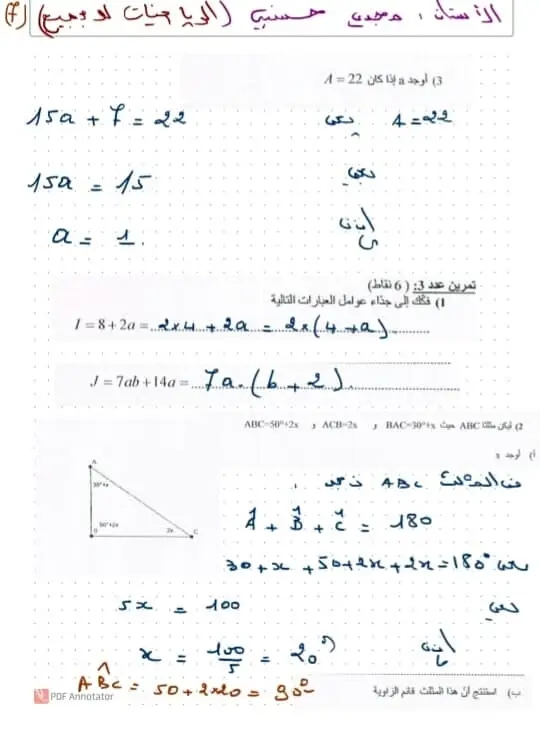 الأستاذ : مجدي حسني (الرياضيات للجميع) (7)
3) أوجد a إذا كان A = 22
15a + 7 = 22 يعني A = 22
15a = 15 يعني
a = 1. إذن
تمرين عدد 3: ( 6 نقاط)
1) فكك إلى جذاء عوامل العبارات التالية
I = 8 + 2a = 2×4 + 2a = 2×(4+a)
J = 7ab + 14a = 7a.(b+2).
2) ليكن مثلثا ABC حيث BAC=30°+x و ACB=2x و ABC=50°+2x
أ) أوجد x
A
30°+x
50°+2x
2x
B
C
في المثلث ABC نجد :
Â + B̂ + Ĉ = 180
يعني 30 + x + 50 + 2x + 2x = 180°
5x = 100 يعني
x = 100/5 = 20°
ب) استنتج أن هذا المثلث قائم الزاوية
AB̂C = 50 + 2×20 = 90°
PDF Annotator